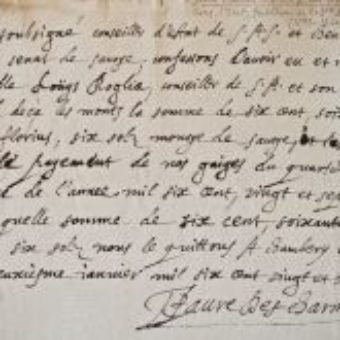 soubsigné conseiller d'Estat de S.A.S. et
senat de savoye, confessons d'avoir eu et
Loÿs Roglia, conseiller de S.A. et son
deça les monts la somme de six cent, soix
florins, six solz monoye de savoye,
payement de nos gaiges du quart
de l'annee mil six cent, vingt et sept
quelle somme de six cent, soixant
six solz nous le quittons A Chambery
deuxiesme janvier mil six cent vingt et
Favre